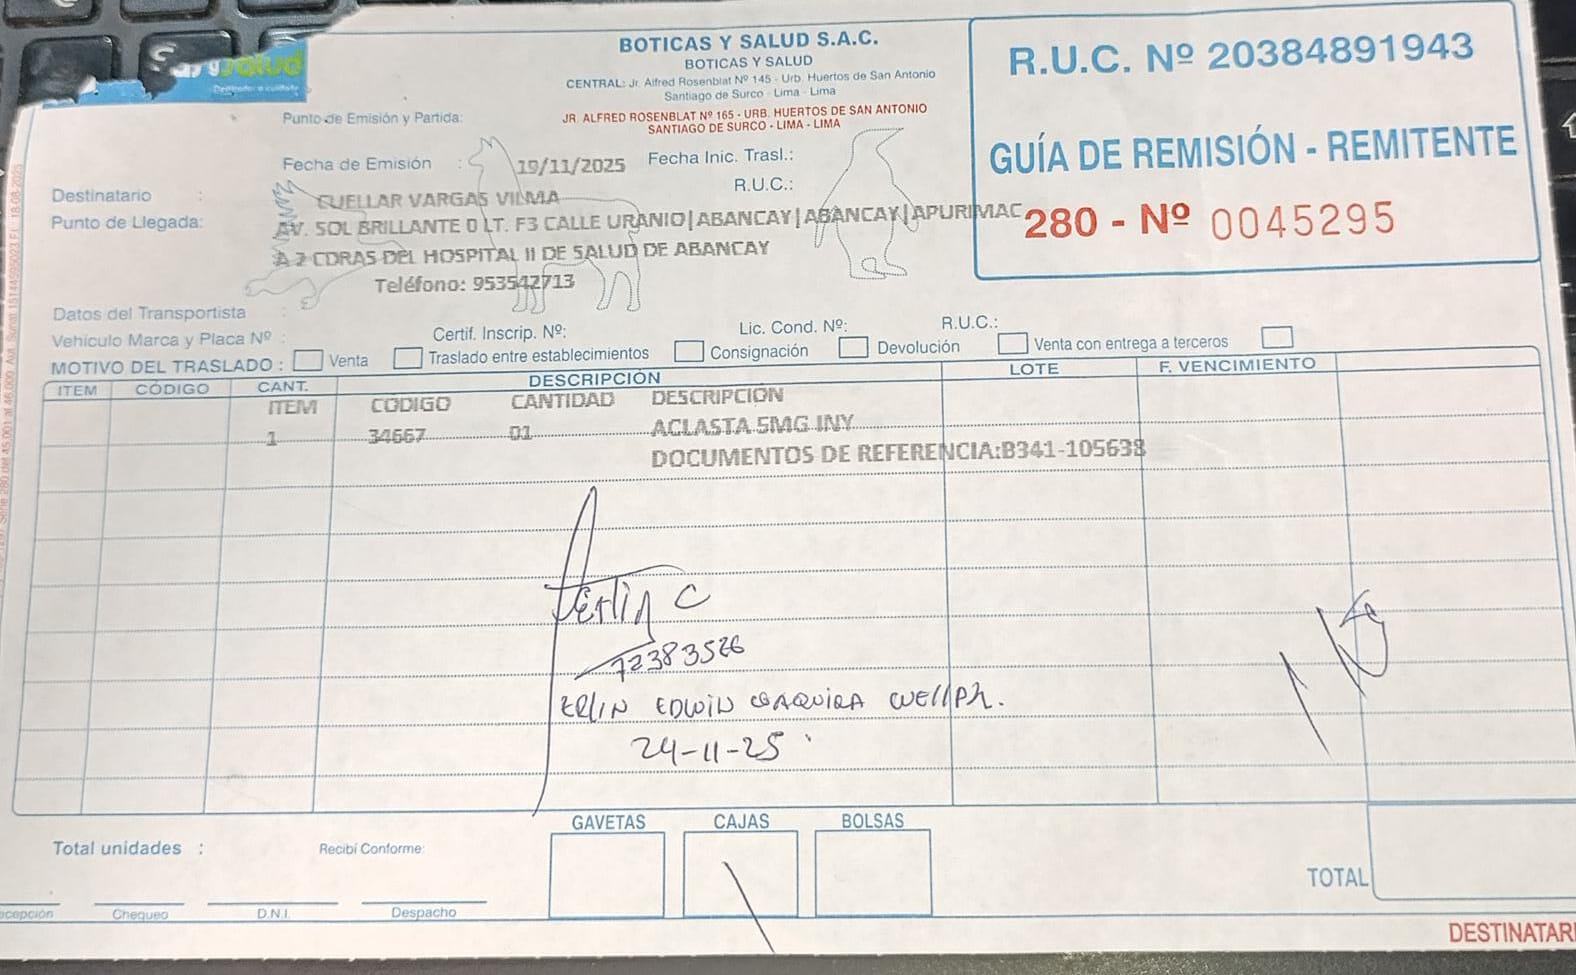 Salud
BOTICAS Y SALUD S.A.C.
BOTICAS Y SALUD
CENTRAL: Jr. Alfred Rosenblat Nº 145 - Urb. Huertos de San Antonio
Santiago de Surco - Lima - Lima
Punto de Emisión y Partida:
JR. ALFRED ROSENBLAT Nº 165 - URB. HUERTOS DE SAN ANTONIO
SANTIAGO DE SURCO - LIMA - LIMA
R.U.C. Nº 20384891943
GUÍA DE REMISIÓN - REMITENTE
280 - Nº 0045295
Fecha de Emisión : 19/11/2025 Fecha Inic. Trasl.:
R.U.C.:
Destinatario : CUELLAR VARGAS VILMA
Punto de Llegada: AV. SOL BRILLANTE 0 LT. F3 CALLE URANIO|ABANCAY|ABANCAY|APURIMAC
A 2 CDRAS DEL HOSPITAL II DE SALUD DE ABANCAY
Teléfono: 953542713
Datos del Transportista :
Vehículo Marca y Placa Nº : Certif. Inscrip. Nº: Lic. Cond. Nº: R.U.C.:
MOTIVO DEL TRASLADO : Venta Traslado entre establecimientos Consignación Devolución Venta con entrega a terceros
ITEM CÓDIGO CANT. DESCRIPCIÓN LOTE F. VENCIMIENTO
ITEM CODIGO CANTIDAD DESCRIPCION
1 34667 01 ACLASTA 5MG INY
DOCUMENTOS DE REFERENCIA:B341-105638
72383526
ERLIN EDWIN
24-11-25
GAVETAS CAJAS BOLSAS
Total unidades : Recibí Conforme:
TOTAL
Chequeo D.N.I. Despacho
DESTINATARI